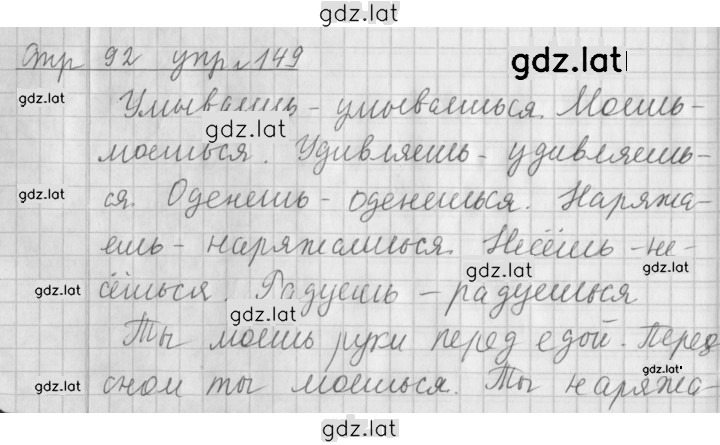 gdz.lat
Стр 92 упр. 149
gdz.lat
gdz.lat
Умываешь - умываешься. Моешь -
gdz.lat
моешься. Удивляешь - удивляешь-
gdz.lat
ся. Оденешь - оденешься. Наряжа-
ешь - наряжаешься. Несёшь - не-
gdz.lat
gdz.lat
gdz.lat
сёшься. Радуешь - радуешься
gdz.lat
Ты моешь руки перед едой. Перед
gdz.lat
gdz.lat
сном ты моешься. Ты наряжа-
gdz.lat